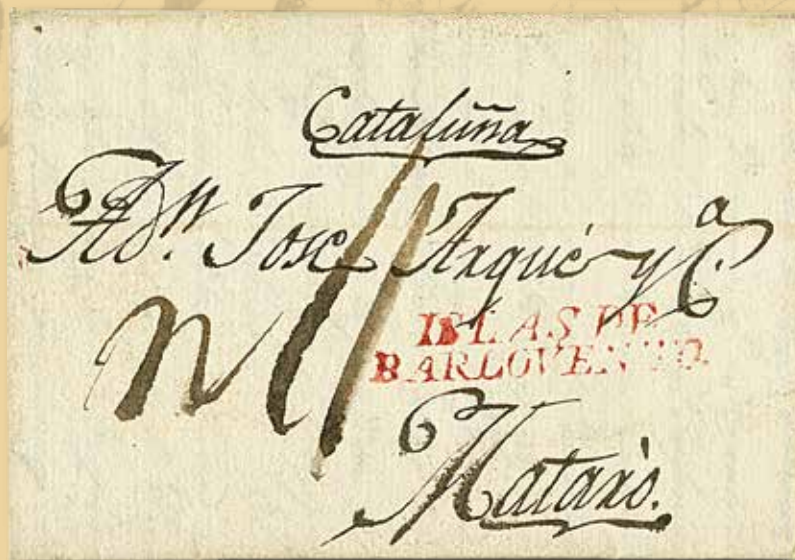 Cataluña
A Dn. Jose Arqué y Ca.
ISLAS DE
BARLOVENTO.
Mataró.